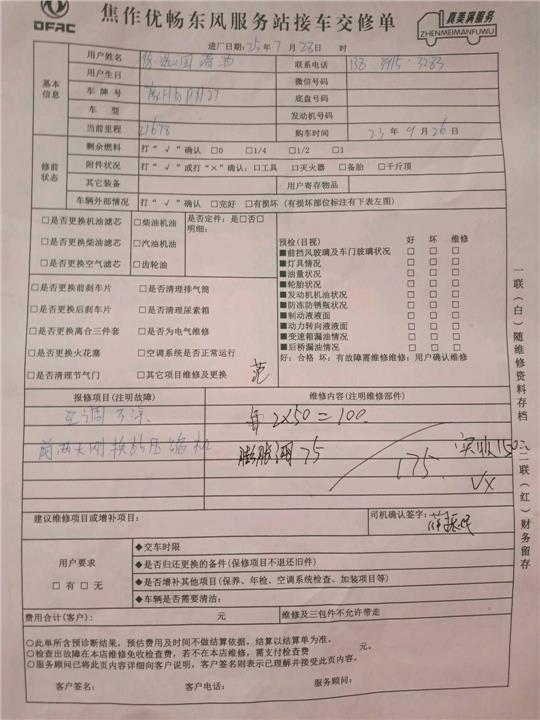 DFAC
焦作优畅东风服务站接车交修单
真美满服务
ZHENMEIMANFUWU
进厂日期：25年7月28日 时
基本信息
用户姓名 联系电话 138 3915 3283
用户生日 微信号码
车牌号 底盘号码
车型 发动机号码
当前里程 21678 购车时间 23年9月26日
修前状态
剩余燃料 打“√”确认 □0 □1/4 □1/2 □1
附件状况 打“√”或打“×”确认：□工具 □灭火器 □备胎 □千斤顶
其它装备 用户寄存物品
车辆外部情况 打“√”确认 □完好 □有损坏（有损坏部位标注有下表左图）
□是否更换机油滤芯 □柴油机油 是否定件：是□否□
明细：
□是否更换柴油滤芯 □汽油机油
□是否更换空气滤芯 □齿轮油
□是否更换前刹车片 □是否清理排气筒
□是否更换后刹车片 □是否清理尿素箱
□是否更换离合三件套 □是否为电气维修
□是否更换火花塞 □空调系统是否正常运行
□是否清理节气门 □其它项目维修及更换
预检(目视) 好 坏 维修
■前挡风玻璃及车门玻璃状况 □ □ □
■灯具情况 □ □ □
■油量状况 □ □ □
■轮胎状况 □ □ □
■发动机机油状况 □ □ □
■防冻防锈瓶状况 □ □ □
■制动液液面 □ □ □
■动力转向液液面 □ □ □
■变速箱漏油情况 □ □ □
■后桥漏油情况 □ □ □
好：合格 坏：有故障需维修维修：用户确认维修
报修项目(注明故障) 维修内容(注明维修部件)
空调不凉 2×50=100
换的压缩机 膨胀阀75
175 实收150
建议维修项目或增补项目：
司机确认签字：
用户要求
□有 □无
◆交车时限
◆是否归还更换的备件(保修项目不退还旧件)
◆是否增补其他项目(保养、年检、空调系统检查、加装项目等)
◆车辆是否需要清洁：
费用合计(客户)： 元 维修及三包件不允许带走
○此单所含预诊断结果，预估费用及时间不做结算依据，结算以结算单为准。
○检查出故障在本店维修免收检查费，若不在本店维修，需支付检查费 元。
○服务顾问已将此页内容详细向客户说明，客户签名则表示已理解并接受此页内容。
客户签名： 客户电话： 服务顾问：
一联（白）随维修资料存档
二联（红）财务留存